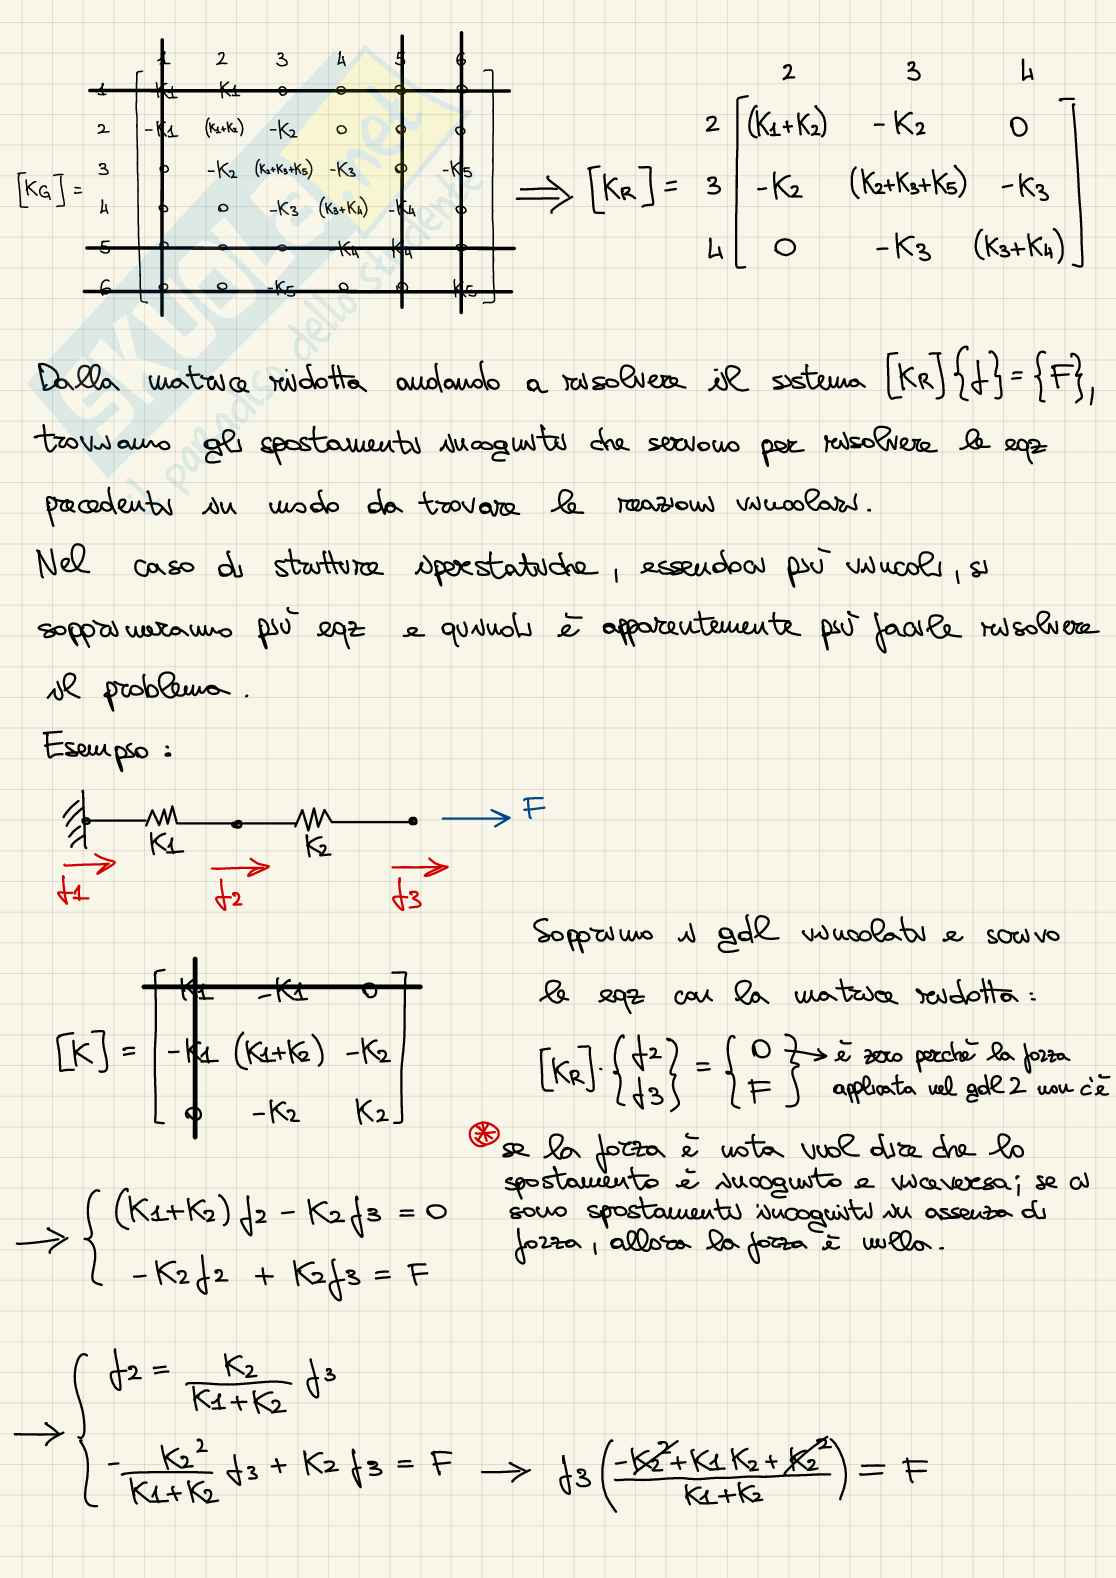 1 2 3 4 5 6
1 K1 -K1 0 0 0 0
2 -K1 (K1+K2) -K2 0 0 0
[KG] = 3 0 -K2 (K2+K3+K5) -K3 0 -K5
4 0 0 -K3 (K3+K4) -K4 0
5 0 0 0 -K4 K4 0
6 0 0 -K5 0 0 K5
2 3 4
2 (K1+K2) -K2 0
⇒ [KR] = 3 -K2 (K2+K3+K5) -K3
4 0 -K3 (K3+K4)
SKUOLA.net
il paradiso dello studente
Dalla matrice ridotta andando a risolvere il sistema [KR]{f}={F},
troviamo gli spostamenti incogniti che servono per risolvere le eqz
precedenti in modo da trovare le reazioni vincolari.
Nel caso di strutture iperstatiche, essendoci più vincoli, si
sopprimeranno più eqz e quindi è apparentemente più facile risolvere
il problema.
Esempio:
F
K1 K2
f1 f2 f3
Sopprimo i gdl vincolati e scrivo
le eqz con la matrice ridotta:
K1 -K1 0
[K] = -K1 (K1+K2) -K2
0 -K2 K2
[KR]·{f2 f3} = {0 F} → è zero perchè la forza
applicata nel gdl 2 non c'è
⊛ se la forza è nota vuol dire che lo
spostamento è incognito e viceversa; se ci
sono spostamenti incogniti in assenza di
forza, allora la forza è nulla.
→ { (K1+K2) f2 - K2 f3 = 0
-K2 f2 + K2 f3 = F
→ { f2 = K2/(K1+K2) f3
-K2²/(K1+K2) f3 + K2 f3 = F → f3 ((-K2²+K1K2+K2²)/(K1+K2)) = F